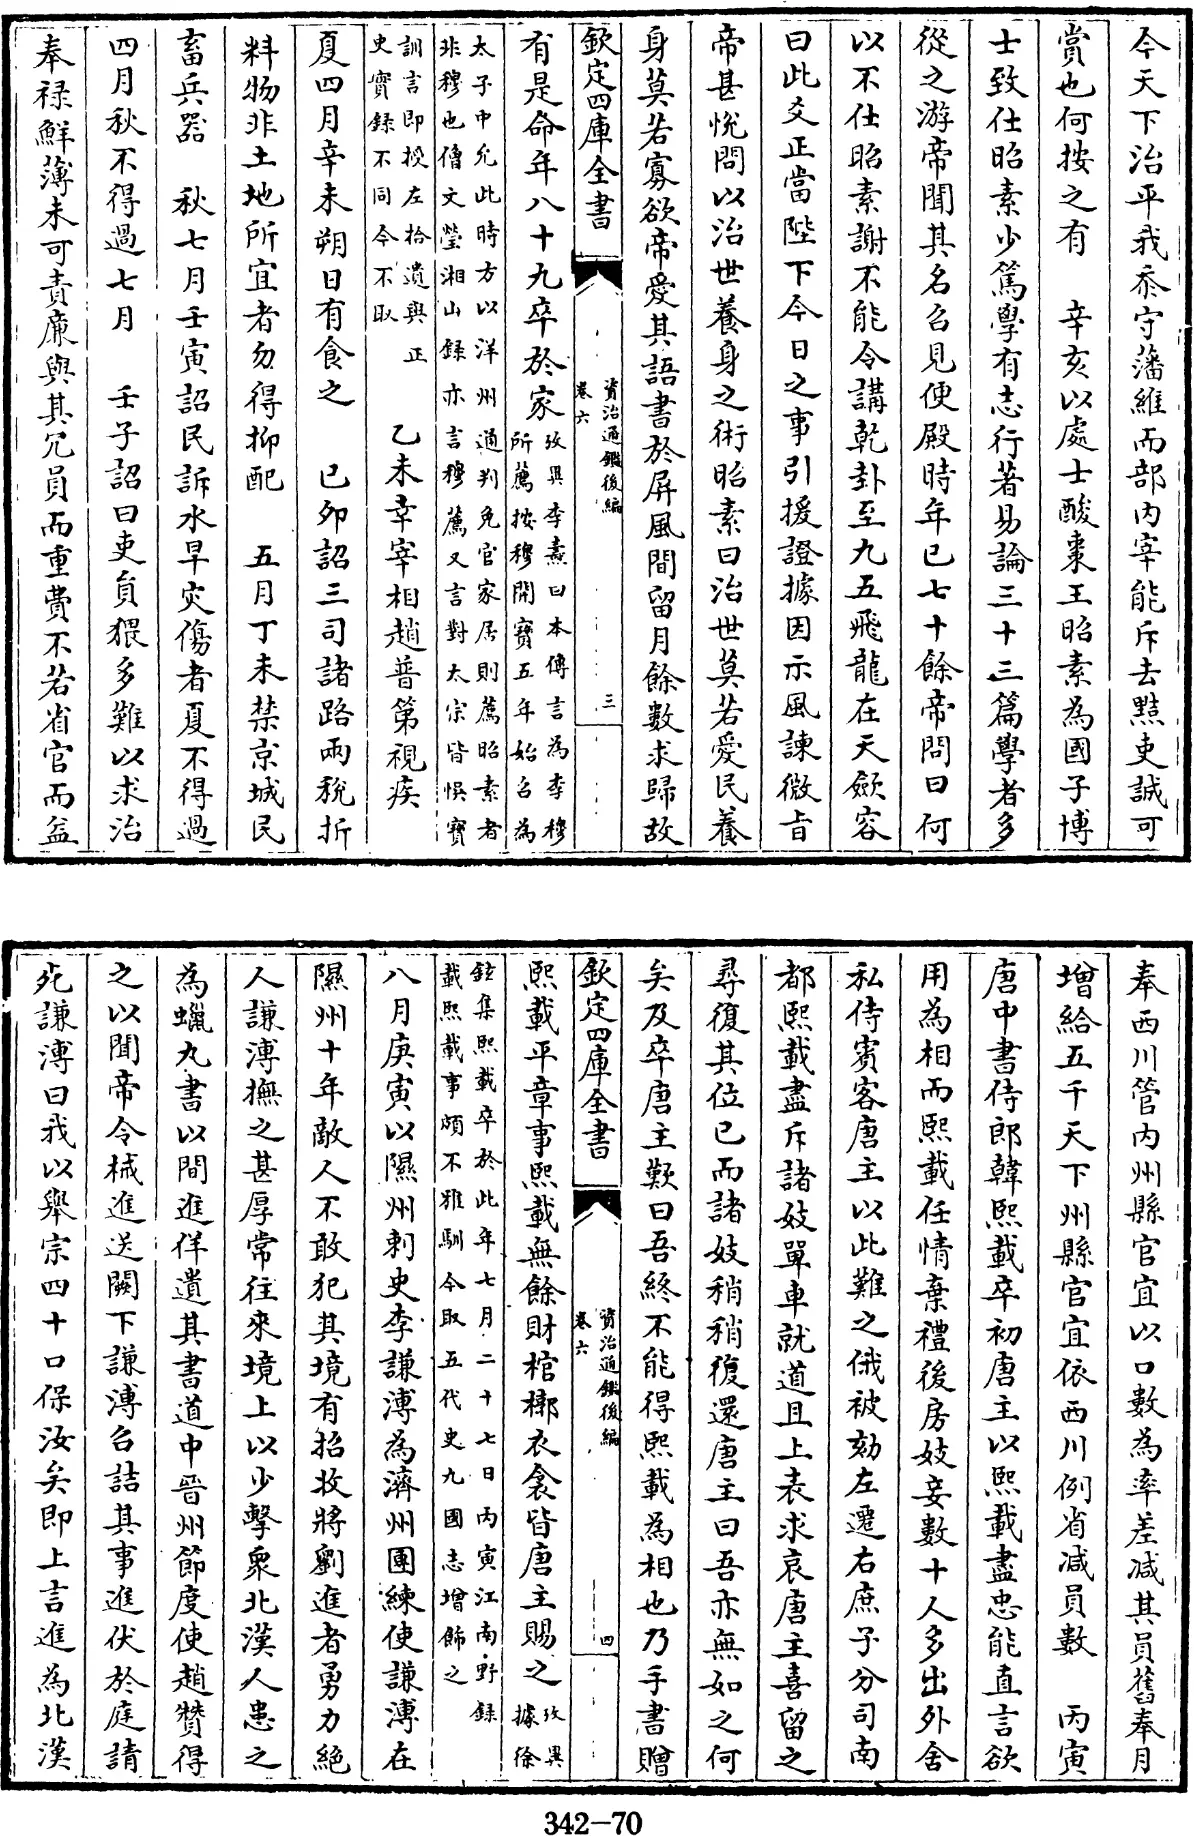 今天下治平我忝守藩維而部内宰能斥去黠吏誠可
賞也何按之有　辛亥以處士酸棗王昭素為國子博
士致仕昭素少篤學有志行著易論三十三篇學者多
從之游帝聞其名召見便殿時年已七十餘帝問曰何
以不仕昭素謝不能令講乾卦至九五飛龍在天歛容
曰此爻正當陛下今日之事引援證據因示風諫微旨
帝甚悅問以治世養身之術昭素曰治世莫若愛民養
身莫若寡欲帝愛其語書於屏風間留月餘數求歸故
欽定四庫全書
資治通鑑後編
卷六
三
有是命年八十九卒於家
攷異李燾曰本傳言為李穆
所薦按穆開寶五年始召為
太子中允此時方以洋州通判免官家居則薦昭素者
非穆也僧文瑩湘山録亦言穆薦又言對太宗皆悞寶
訓言即授左拾遺與正
史實録不同今不取
夏四月辛未朔日有食之　乙未幸宰相趙普第視疾
　己卯詔三司諸路兩稅折
料物非土地所宜者勿得抑配　五月丁未禁京城民
畜兵器　秋七月壬寅詔民訴水旱灾傷者夏不得過
四月秋不得過七月　壬子詔曰吏員猥多難以求治
奉禄鮮薄未可責廉與其冗員而重費不若省官而益
奉西川管内州縣官宜以口數為率差减其員舊奉月
增給五千天下州縣官宜依西川例省减員數　丙寅
唐中書侍郎韓熙載卒初唐主以熙載盡忠能直言欲
用為相而熙載任情棄禮後房妓妾數十人多出外舍
私侍賓客唐主以此難之俄被劾左遷右庶子分司南
都熙載盡斥諸妓單車就道且上表求哀唐主喜留之
尋復其位已而諸妓稍稍復還唐主曰吾亦無如之何
矣及卒唐主歎曰吾終不能得熙載為相也乃手書贈
欽定四庫全書
資治通鑑後編
卷六
四
熙載平章事熙載無餘財棺槨衣衾皆唐主賜之
攷異
據徐
鉉集熙載卒於此年七月二十七日丙寅江南野録
載熙載事頗不雅馴今取五代史九國志增飾之
八月庚寅以隰州刺史李謙溥為濟州團練使謙溥在
隰州十年敵人不敢犯其境有招收將劉進者勇力絶
人謙溥撫之甚厚常往來境上以少擊衆北漢人患之
為蠟丸書以間進佯遺其書道中晉州節度使趙贊得
之以聞帝令械進送闕下謙溥召詰其事進伏於庭請
死謙溥曰我以舉宗四十口保汝矣即上言進為北漢
342-70